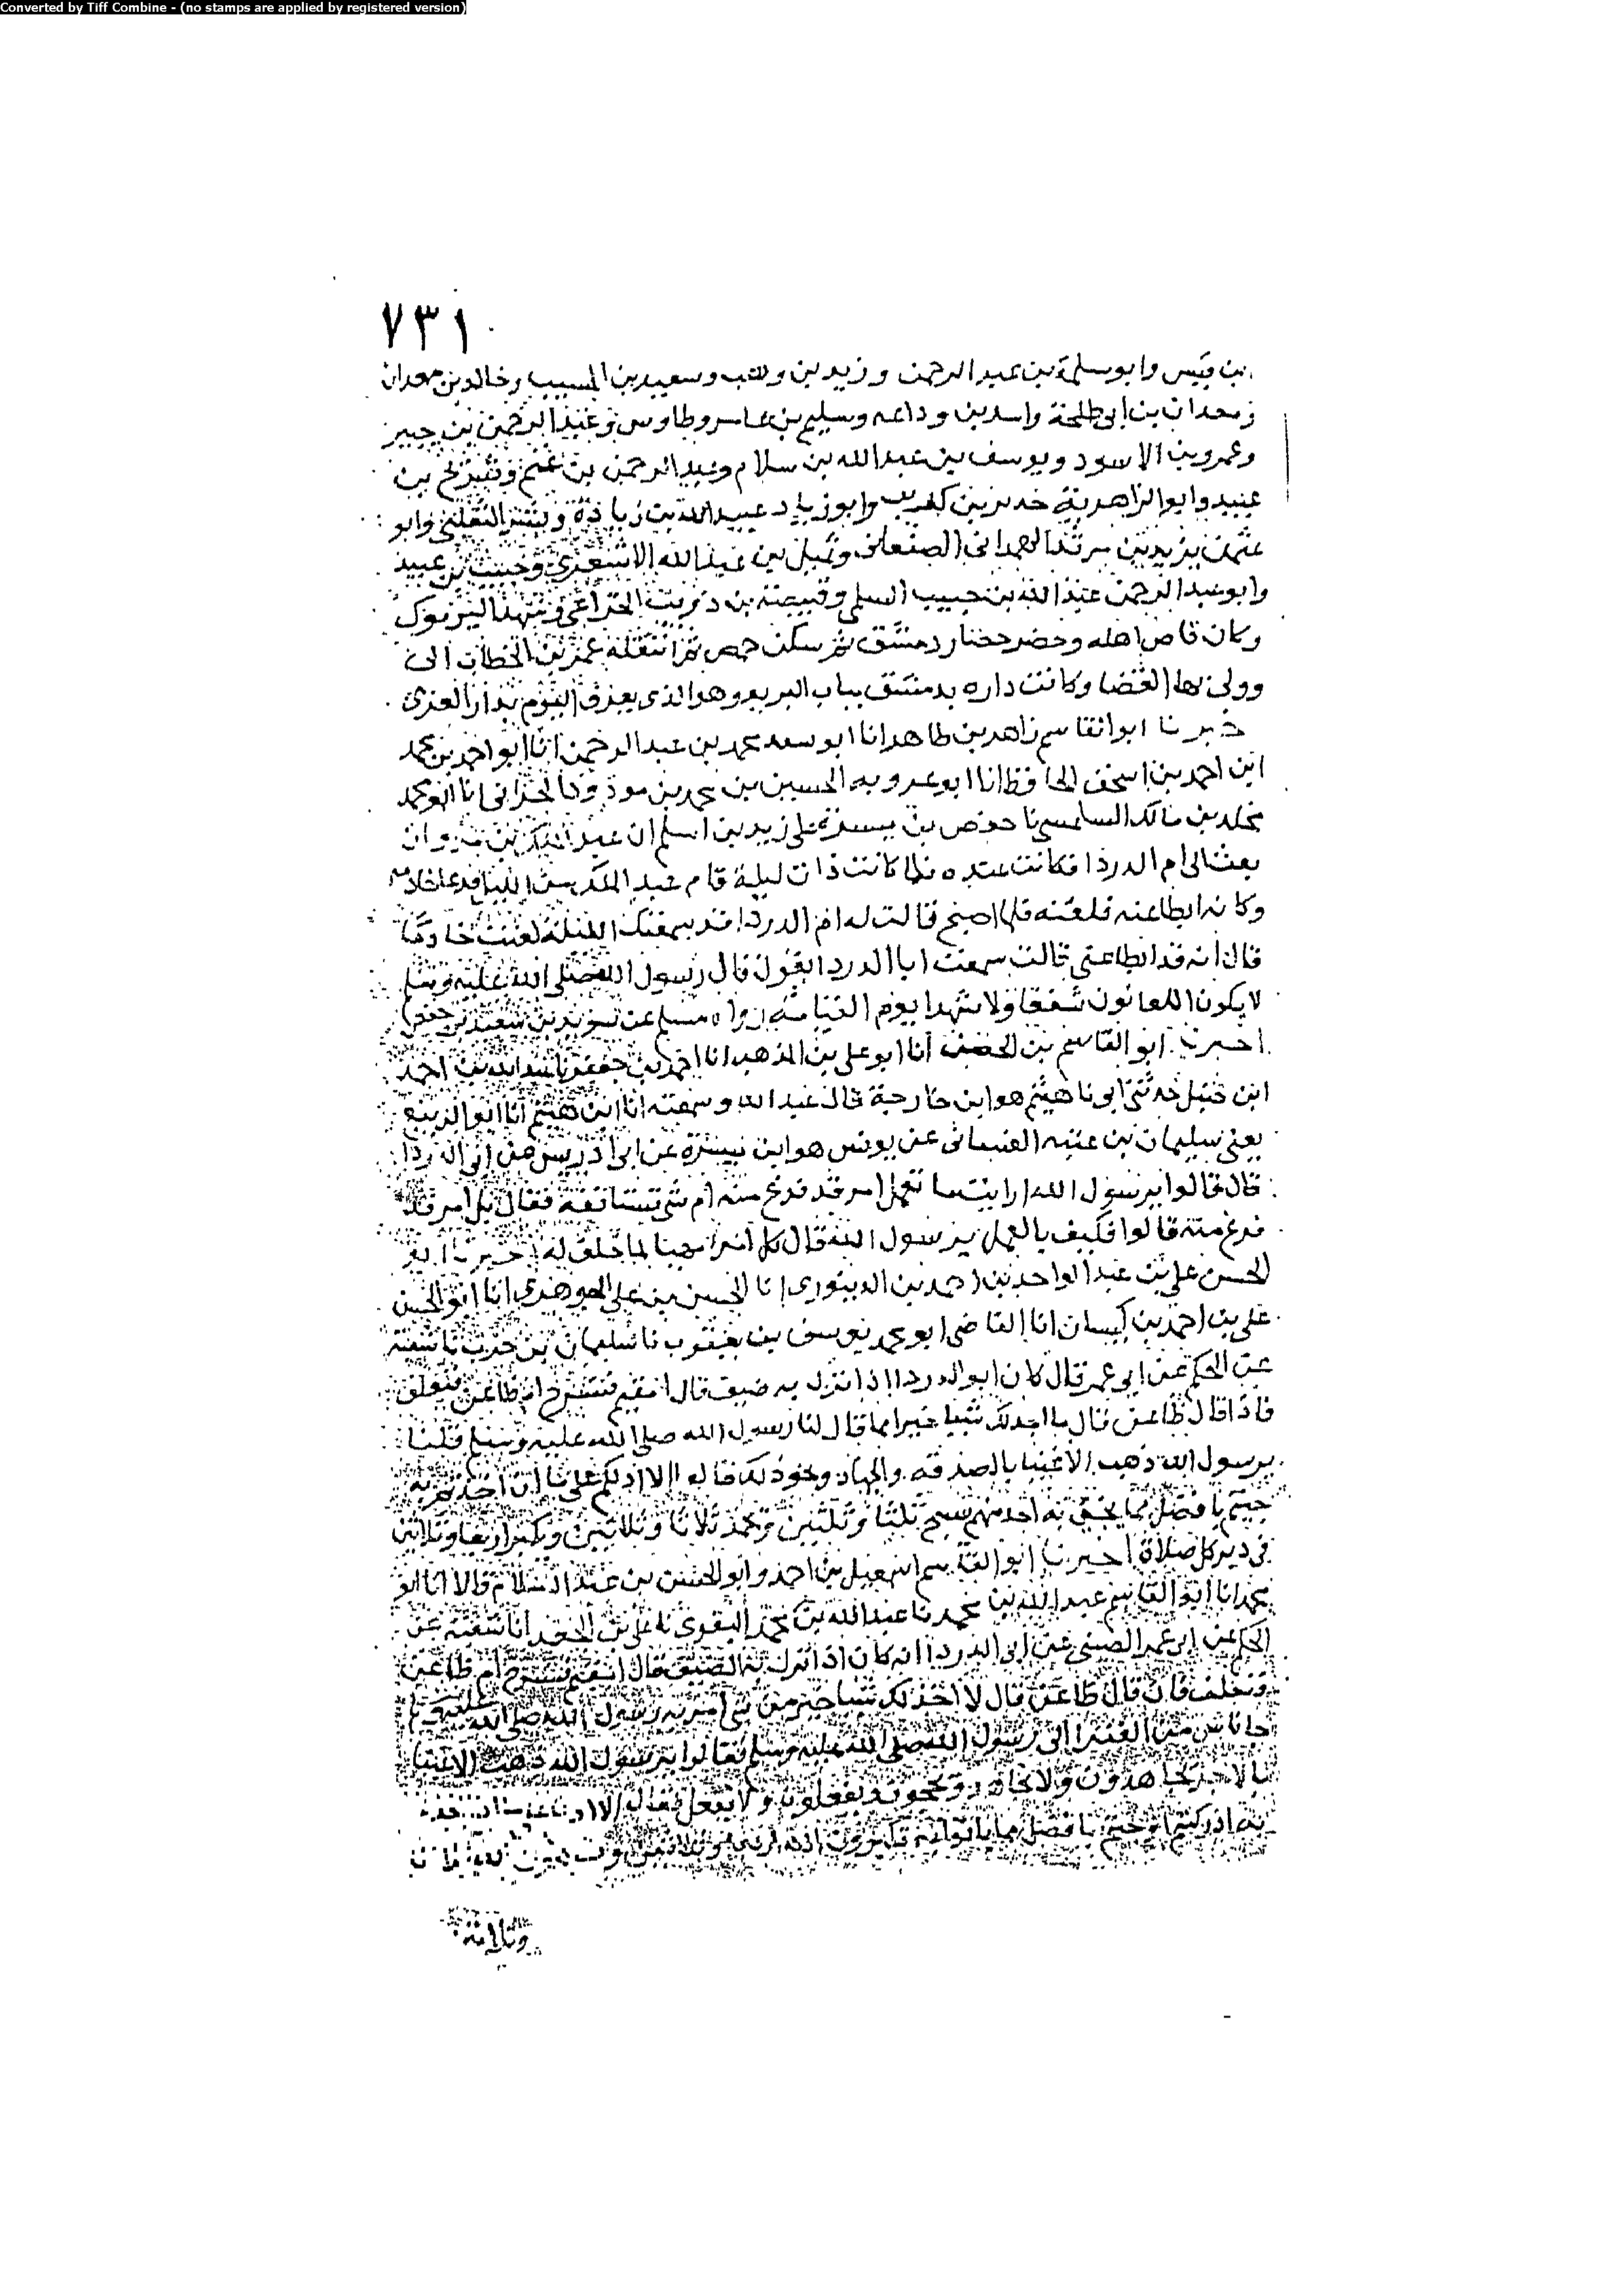 Converted by Tiff Combine - (no stamps are applied by registered version)
٧٣١
بن قيس وابوسلمة بن عبد الرحمن وزيد بن وهب وسعيد بن المسيب وخالد بن معدان
ومعدان بن ابي طلحة واسد بن وداعه وسليم بن عامر وطاوس وعبد الرحمن بن جبير
وعمرو بن الاسود ويوسف بن عبد الله بن سلام وعبد الرحمن بن غنم وشريح بن
عبيد وابو الزاهرية حدير بن كريب وابو زياد عبيد الله بن زيادة وبشر التغلبي وابو
عثمن يزيد بن مرثد الهمداني الصنعاني وثميل بن عبد الله الاشعري وحبيب بن عبيد
وابو عبد الرحمن عبد الله بن حبيب السلمي وقبيصة بن ذويب الخزاعي وشهد اليرموك
وكان قاص اهله وحضر حصار دمشق ثم سكن حمص ثم انتقله عمر بن الخطاب الى
وولي بها القضا وكانت داره بدمشق بباب البريد وهو الذي يعرف اليوم بدار الغزي
خبرنا ابو القاسم زاهر بن طاهر انا ابو سعد محمد بن عبد الرحمن انا ابو احمد بن محمد
ابن احمد بن اسحق الحافظ انا ابو عروبه الحسين بن محمد بن مودود الحراني انا ابو محمد
مخلد بن مالك السلمسي نا حفص بن ميسرة على زيد بن اسلم ان عبد الملك بن مروان
بعث الى ام الدردا فكانت عنده فلما كانت ذات ليلة قام عبد الملك من الليل فدعا خادمه
وكانه ابطا عنه فلعنه فلما اصبح قالت له ام الدردا قد سمعتك الليلة لعنت خادما
قال انه قد ابطا عني قالت سمعت ابا الدردا يقول قال رسول الله صلى الله عليه وسلم
لا يكون اللعانون شفعا ولا شهدا يوم القيامة رواه مسلم عن سويد بن سعيد بن حفص
اخبرنا ابو القاسم بن الحصين انا ابو علي بن المذهب انا احمد بن جعفر نا عبد الله بن احمد
ابن حنبل حدثني ابي نا هيثم هو ابن خارجة قال عبد الله وسمعته انا ابن هيثم انا ابو الربيع
يعني سليمان بن عتبه الغساني عن يونس هو ابن ميسرة عن ابي ادريس عن ابي الدردا
قال قالوا يرسول الله ارايت ما نعمل امر قد فرغ منه ام شي نستانفه فقال بل امر قد
فرغ منه قالوا فكيف بالعمل يرسول الله قال كل امرا مهيا لما خلق له اخبرنا ابو
الحسن علي بن عبد الواحد بن احمد بن الدينوري انا الحسن بن علي الجوهري انا ابو الحسن
علي بن احمد بن كيسان انا القاضي ابو محمد يوسف بن يعقوب نا سليمان بن حرب نا شعبة
عن الحكم عن ابي عمر قال كان ابو الدردا اذا نزل به ضيف قال امقيم فنسرح ام ظاعن فنعلف
فاذا قال ظاعن قال ما اجد لك شيا خيرا مما قال لنا رسول الله صلى الله عليه وسلم قلنا
يرسول الله ذهب الاغنيا بالصدقه والجهاد ونحو ذلك قال الا ادلكم على ان اخذتم به
جيتم بافضل مما يجي به احد منهم تسبح ثلثا وثلثين وتحمد ثلاثا وثلاثين وتكبر اربعا وثلاثين
في دبر كل صلاة اخبرنا ابو القاسم اسمعيل بن احمد وابو الحسن بن عبد السلام قالا انا ابو
محمد انا ابو القاسم عبيد الله بن محمد نا عبد الله بن محمد البغوي نا علي بن الجعد انا شعبة عن
الحكم عن ابي عمر الصيني عن ابي الدردا انه كان اذا نزل به الضيف قال امقيم فنسرح ام ظاعن
فنعلف فان قال ظاعن قال لا اجد لك شيا خير من شي امر به رسول الله صلى الله عليه وسلم
جا ناس من الفقرا الى رسول الله صلى الله عليه وسلم فقالوا يرسول الله ذهب الاغنيا
بالاجر يجاهدون ولا نجاهد ويحجون ويفعلون ولا نفعل فقال الا
به ادركتم او جيتم بافضل ما ياتوا به تكبرون الله اربعا وثلاثين
وثلاثة